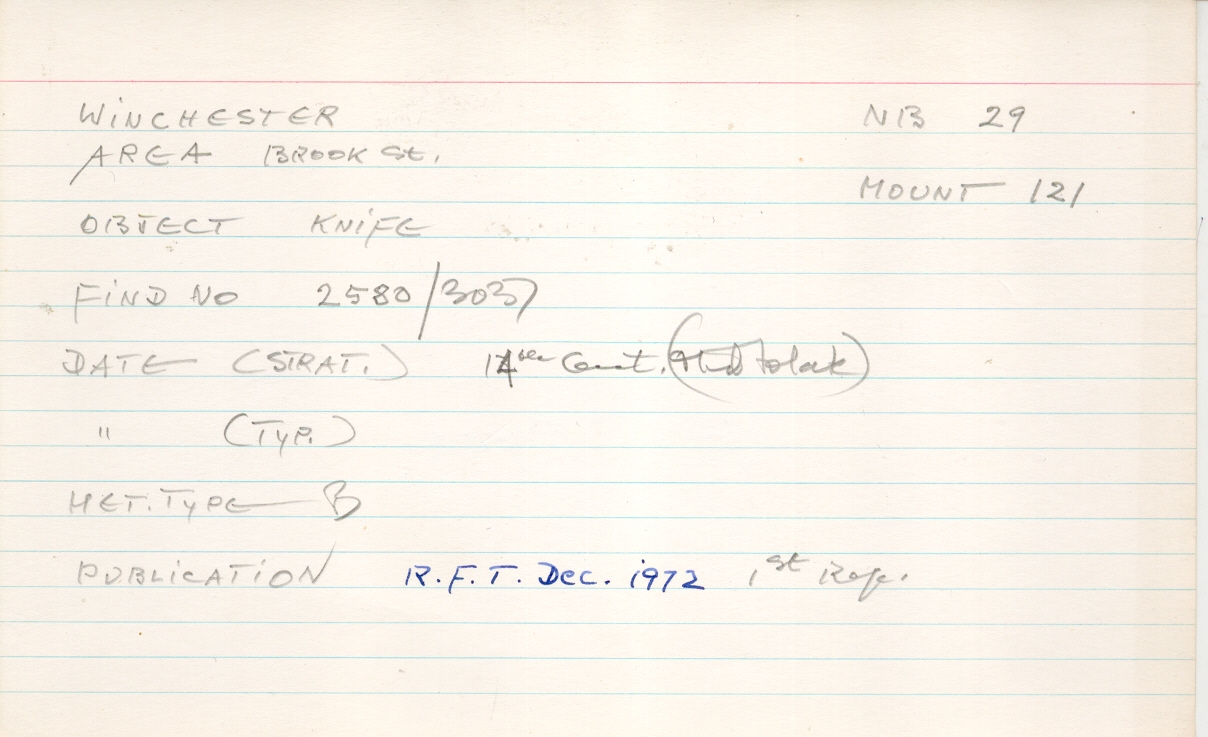 WINCHESTER NB 29
AREA BROOK St.
MOUNT 121
OBJECT KNIFE
FIND NO 2580/3037
DATE (STRAT.) 14th Cent.
" (TYP.)
MET. TYPE B
PUBLICATION R.F.T. Dec. 1972 1st Rep.